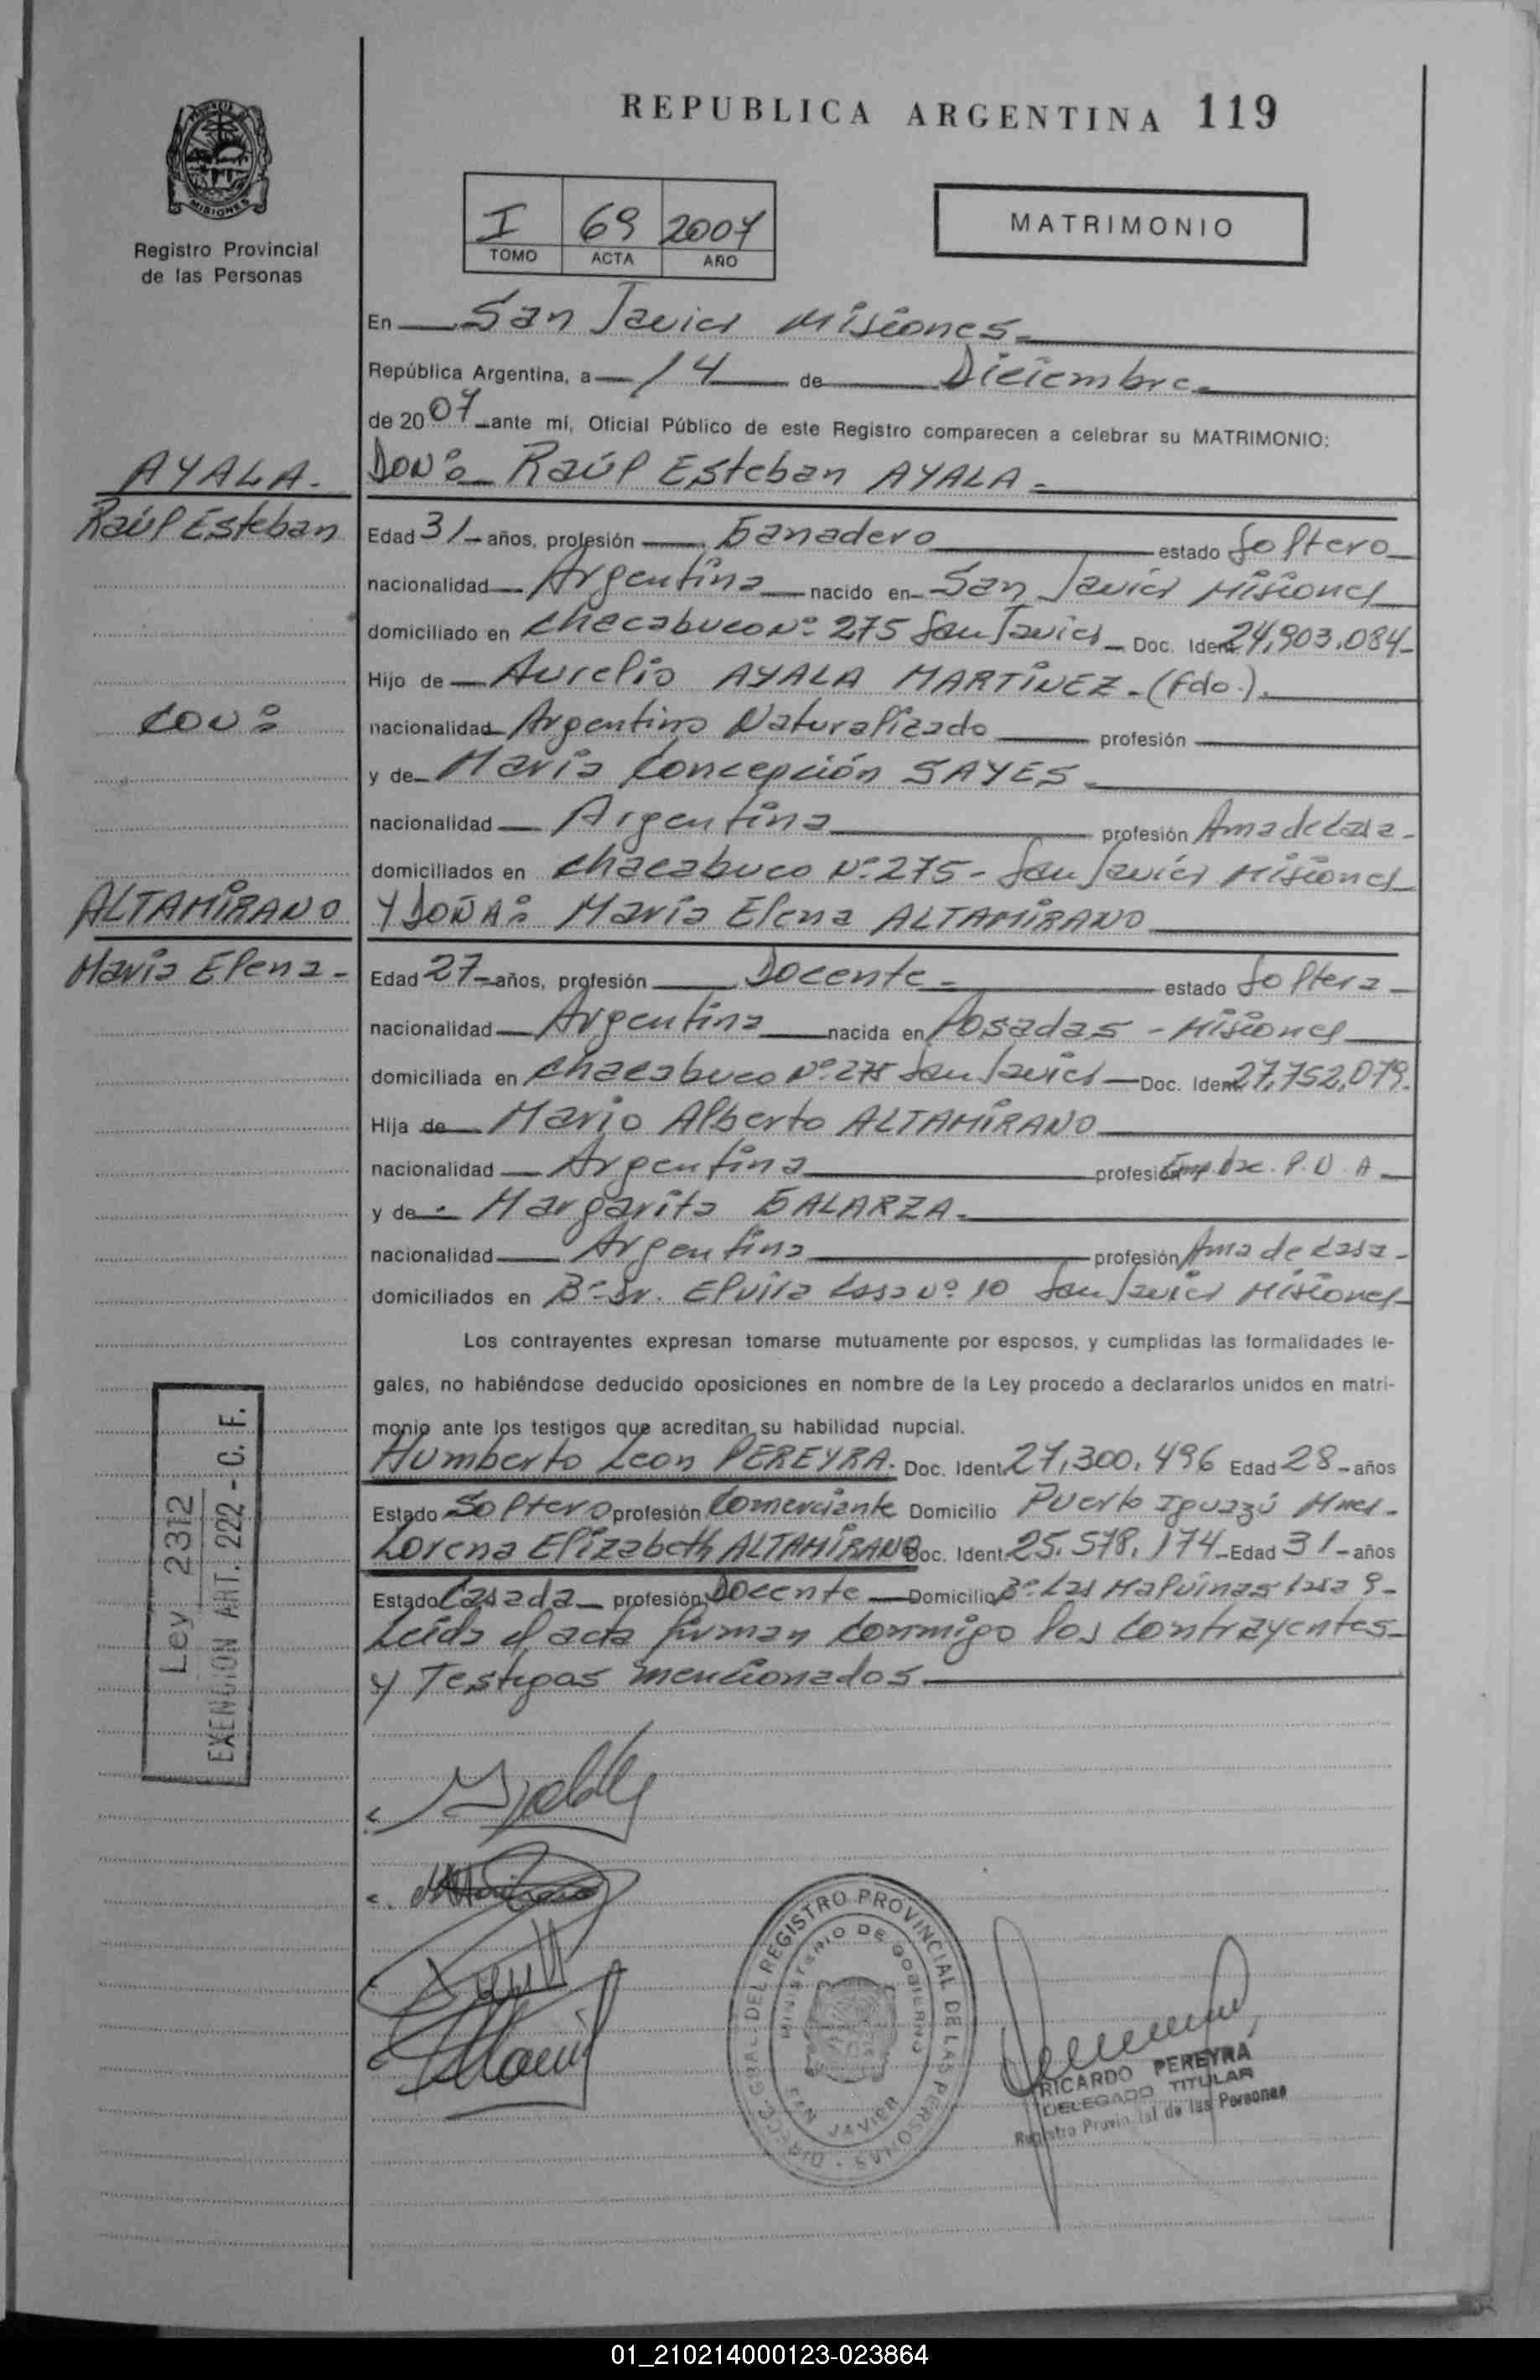 REPUBLICA ARGENTINA 119
MISIONES
Registro Provincial
de las Personas
I 69 2007
TOMO ACTA AÑO
MATRIMONIO
En San Javier Misiones
República Argentina, a 14 de Diciembre
de 2007 ante mí, Oficial Público de este Registro comparecen a celebrar su MATRIMONIO:
AYALA.
Raúl Esteban
CON:
ALTAMIRANO
María Elena
DON: Raúl Esteban AYALA
Edad 31 años, profesión Ganadero estado Soltero
nacionalidad Argentina nacido en San Javier Misiones
domiciliado en Chacabuco Nº 275 San Javier Doc. Ident. 24,903.084
Hijo de Aurelio AYALA MARTINEZ (fdo.)
nacionalidad Argentino Naturalizado profesión
y de María Concepción SAYES
nacionalidad Argentina profesión Ama de Casa
domiciliados en Chacabuco Nº 275 - San Javier Misiones
Y DOÑA: María Elena ALTAMIRANO
Edad 27 años, profesión Docente estado Soltera
nacionalidad Argentina nacida en Posadas - Misiones
domiciliada en Chacabuco Nº 275 San Javier Doc. Ident. 27,752,079.
Hija de Mario Alberto ALTAMIRANO
nacionalidad Argentina profesión P.N.A
y de Margarita GALARZA
nacionalidad Argentina profesión Ama de Casa
domiciliados en Bº Sr. Elvira Casa Nº 10 San Javier Misiones
Los contrayentes expresan tomarse mutuamente por esposos, y cumplidas las formalidades le-
gales, no habiéndose deducido oposiciones en nombre de la Ley procedo a declararlos unidos en matri-
monio ante los testigos que acreditan su habilidad nupcial.
Humberto Leon PEREYRA. Doc. Ident. 27,300.496 Edad 28 años
Estado Soltero profesión Comerciante Domicilio Puerto Iguazú Mnes.
Lorena Elizabeth ALTAMIRANO Doc. Ident. 25.578.174 Edad 31 años
Estado Casada profesión Docente Domicilio Bº Las Malvinas Casa 9
Leída el acta firman conmigo los contrayentes
y Testigos mencionados.
Ley 2312
EXENCION ART. 222 - C. F.
DIREC. GRAL. DEL REGISTRO PROVINCIAL DE LAS PERSONAS
MINISTERIO DE GOBIERNO
SAN JAVIER
RICARDO PEREYRA
DELEGADO TITULAR
Registro Provincial de las Personas
01_210214000123-023864